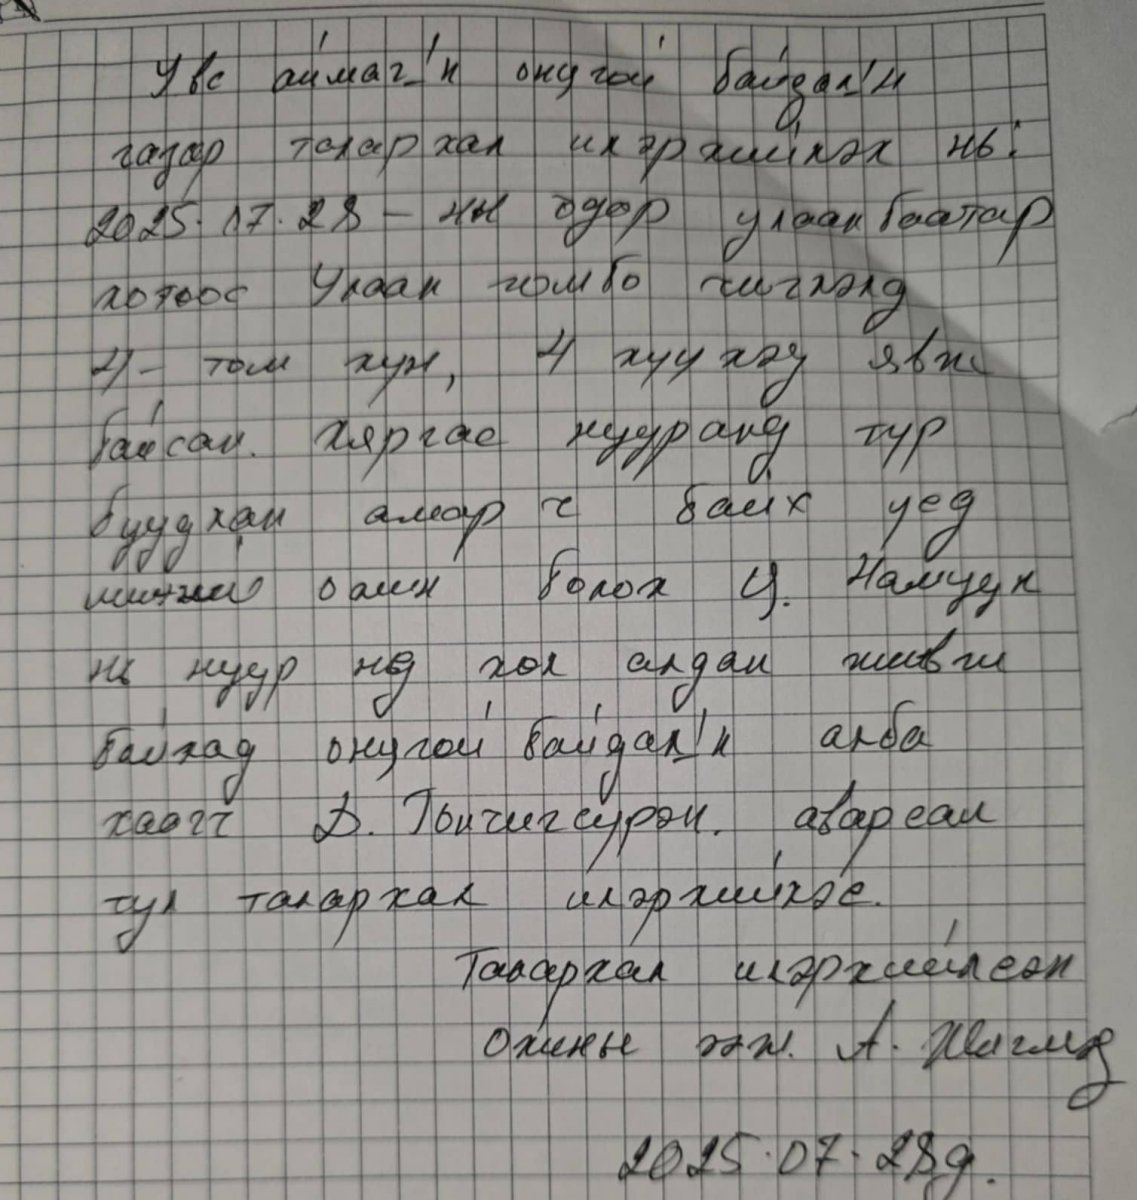 Увс аймаг'н онцгой байдал'н
газар талархал илэрхийлэх нь:
2025.07.28-ны өдөр улаанбаатар
хотоос Улаан гомбо чиглэлд
4- том хүн, 4 хүүхэд явж
байсан. Хяргас нууранд түр
буудхан амар ч байх үед
миний охин болох Ц. Намуун
нь нуур нд хөл алдан живж
байхад онцгой байдал'н алба
хаагч Д. Бичигсүрэн. аварсан
тул талархал илэрхийлэе.
Талархал илэрхийлсэн
Охины ээж. А.
2025.07.28д.